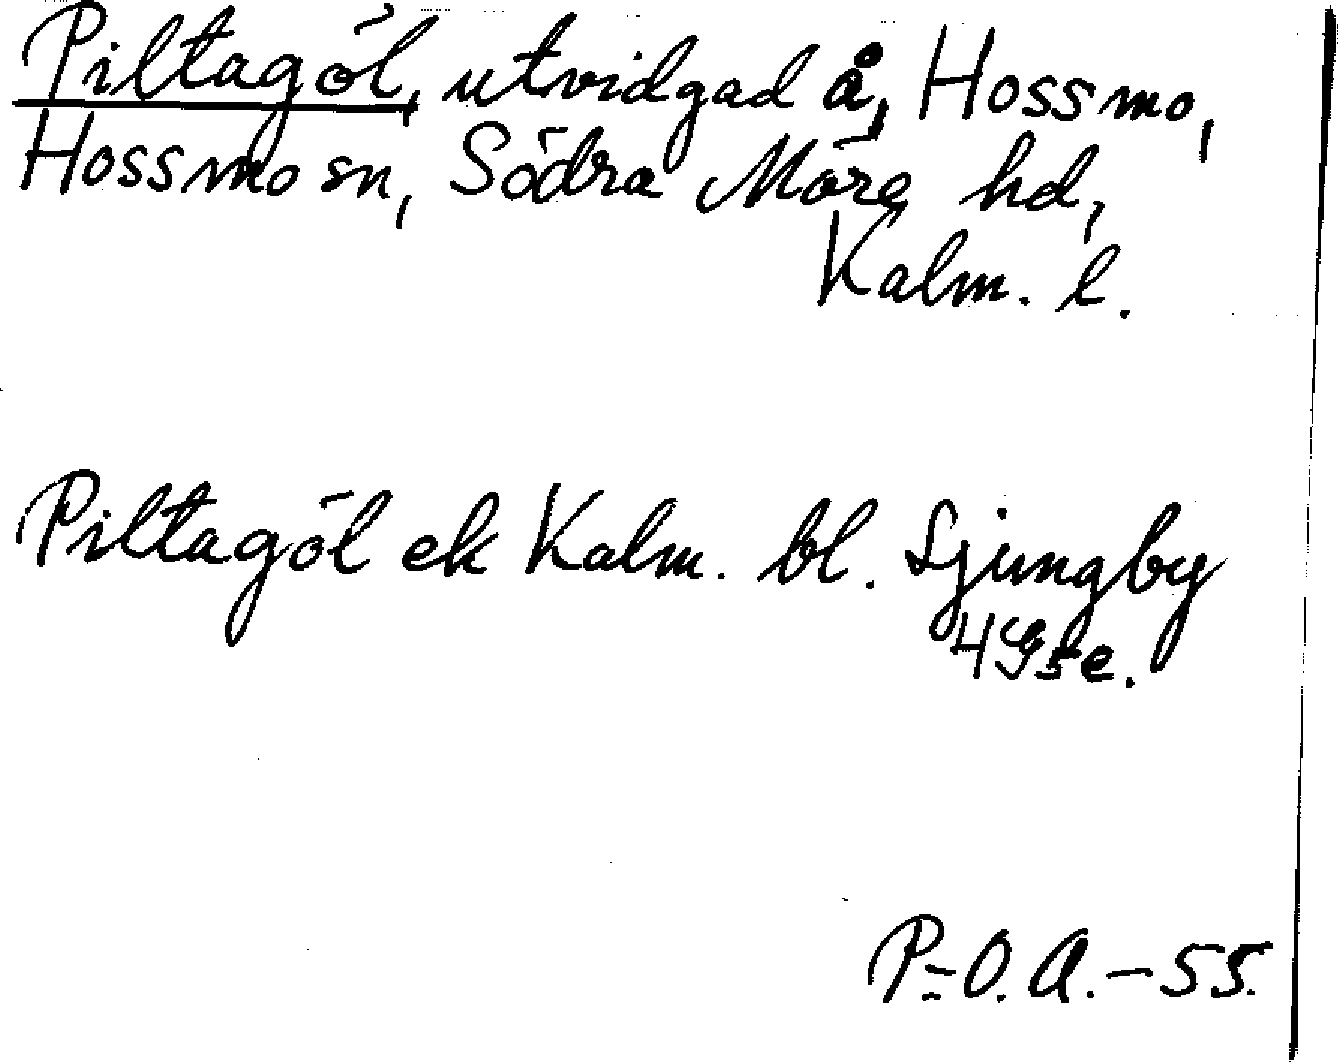 Piltagöl, utvidgad å, Hossmo,
Hossmo sn, Södra Möre hd,
Kalm. l.
Piltagöl ek Kalm. bl. Ljungby
4G5e.
P-O.A.-55.